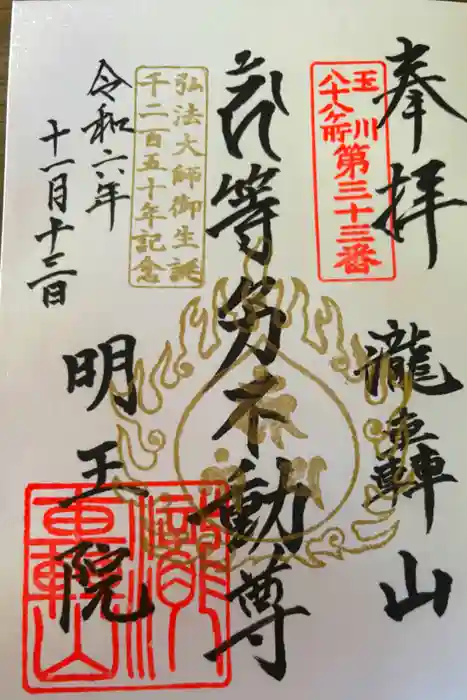 奉拝
玉川
八十八ヶ所第三十三番
瀧轟山
等々力不動尊
弘法大師御生誕
千二百五十年記念
明王院
令和六年
十一月十三日
瀧
轟山